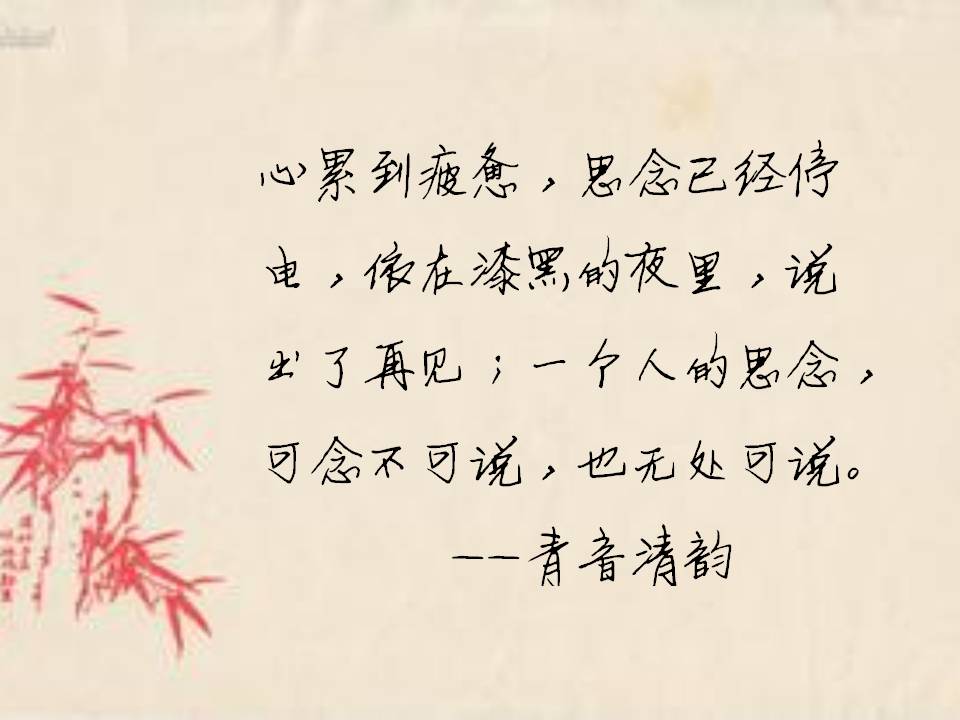 心累到疲惫，思念已经停
电，依在漆黑的夜里，说
出了再见；一个人的思念，
可念不可说，也无处可说。
--青音清韵